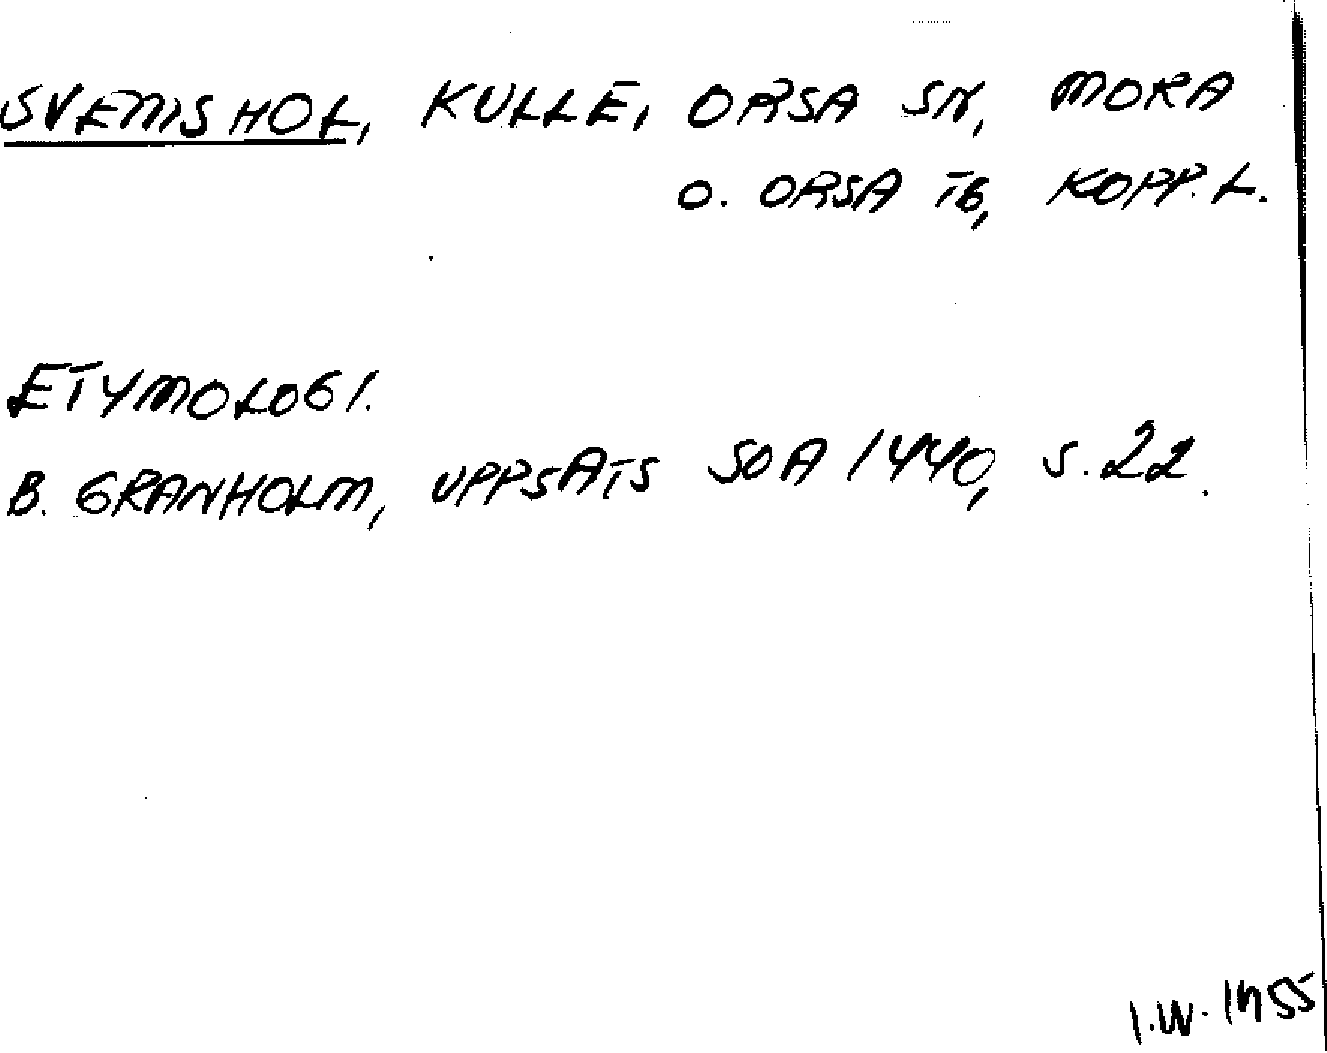 SVEMSHOL, KULLE, ORSA SN, MORA
O. ORSA TG, KOPP. L.
ETYMOLOGI.
B. GRANHOLM, UPPSATS SOA 1440, S. 22.
I.W. 1955